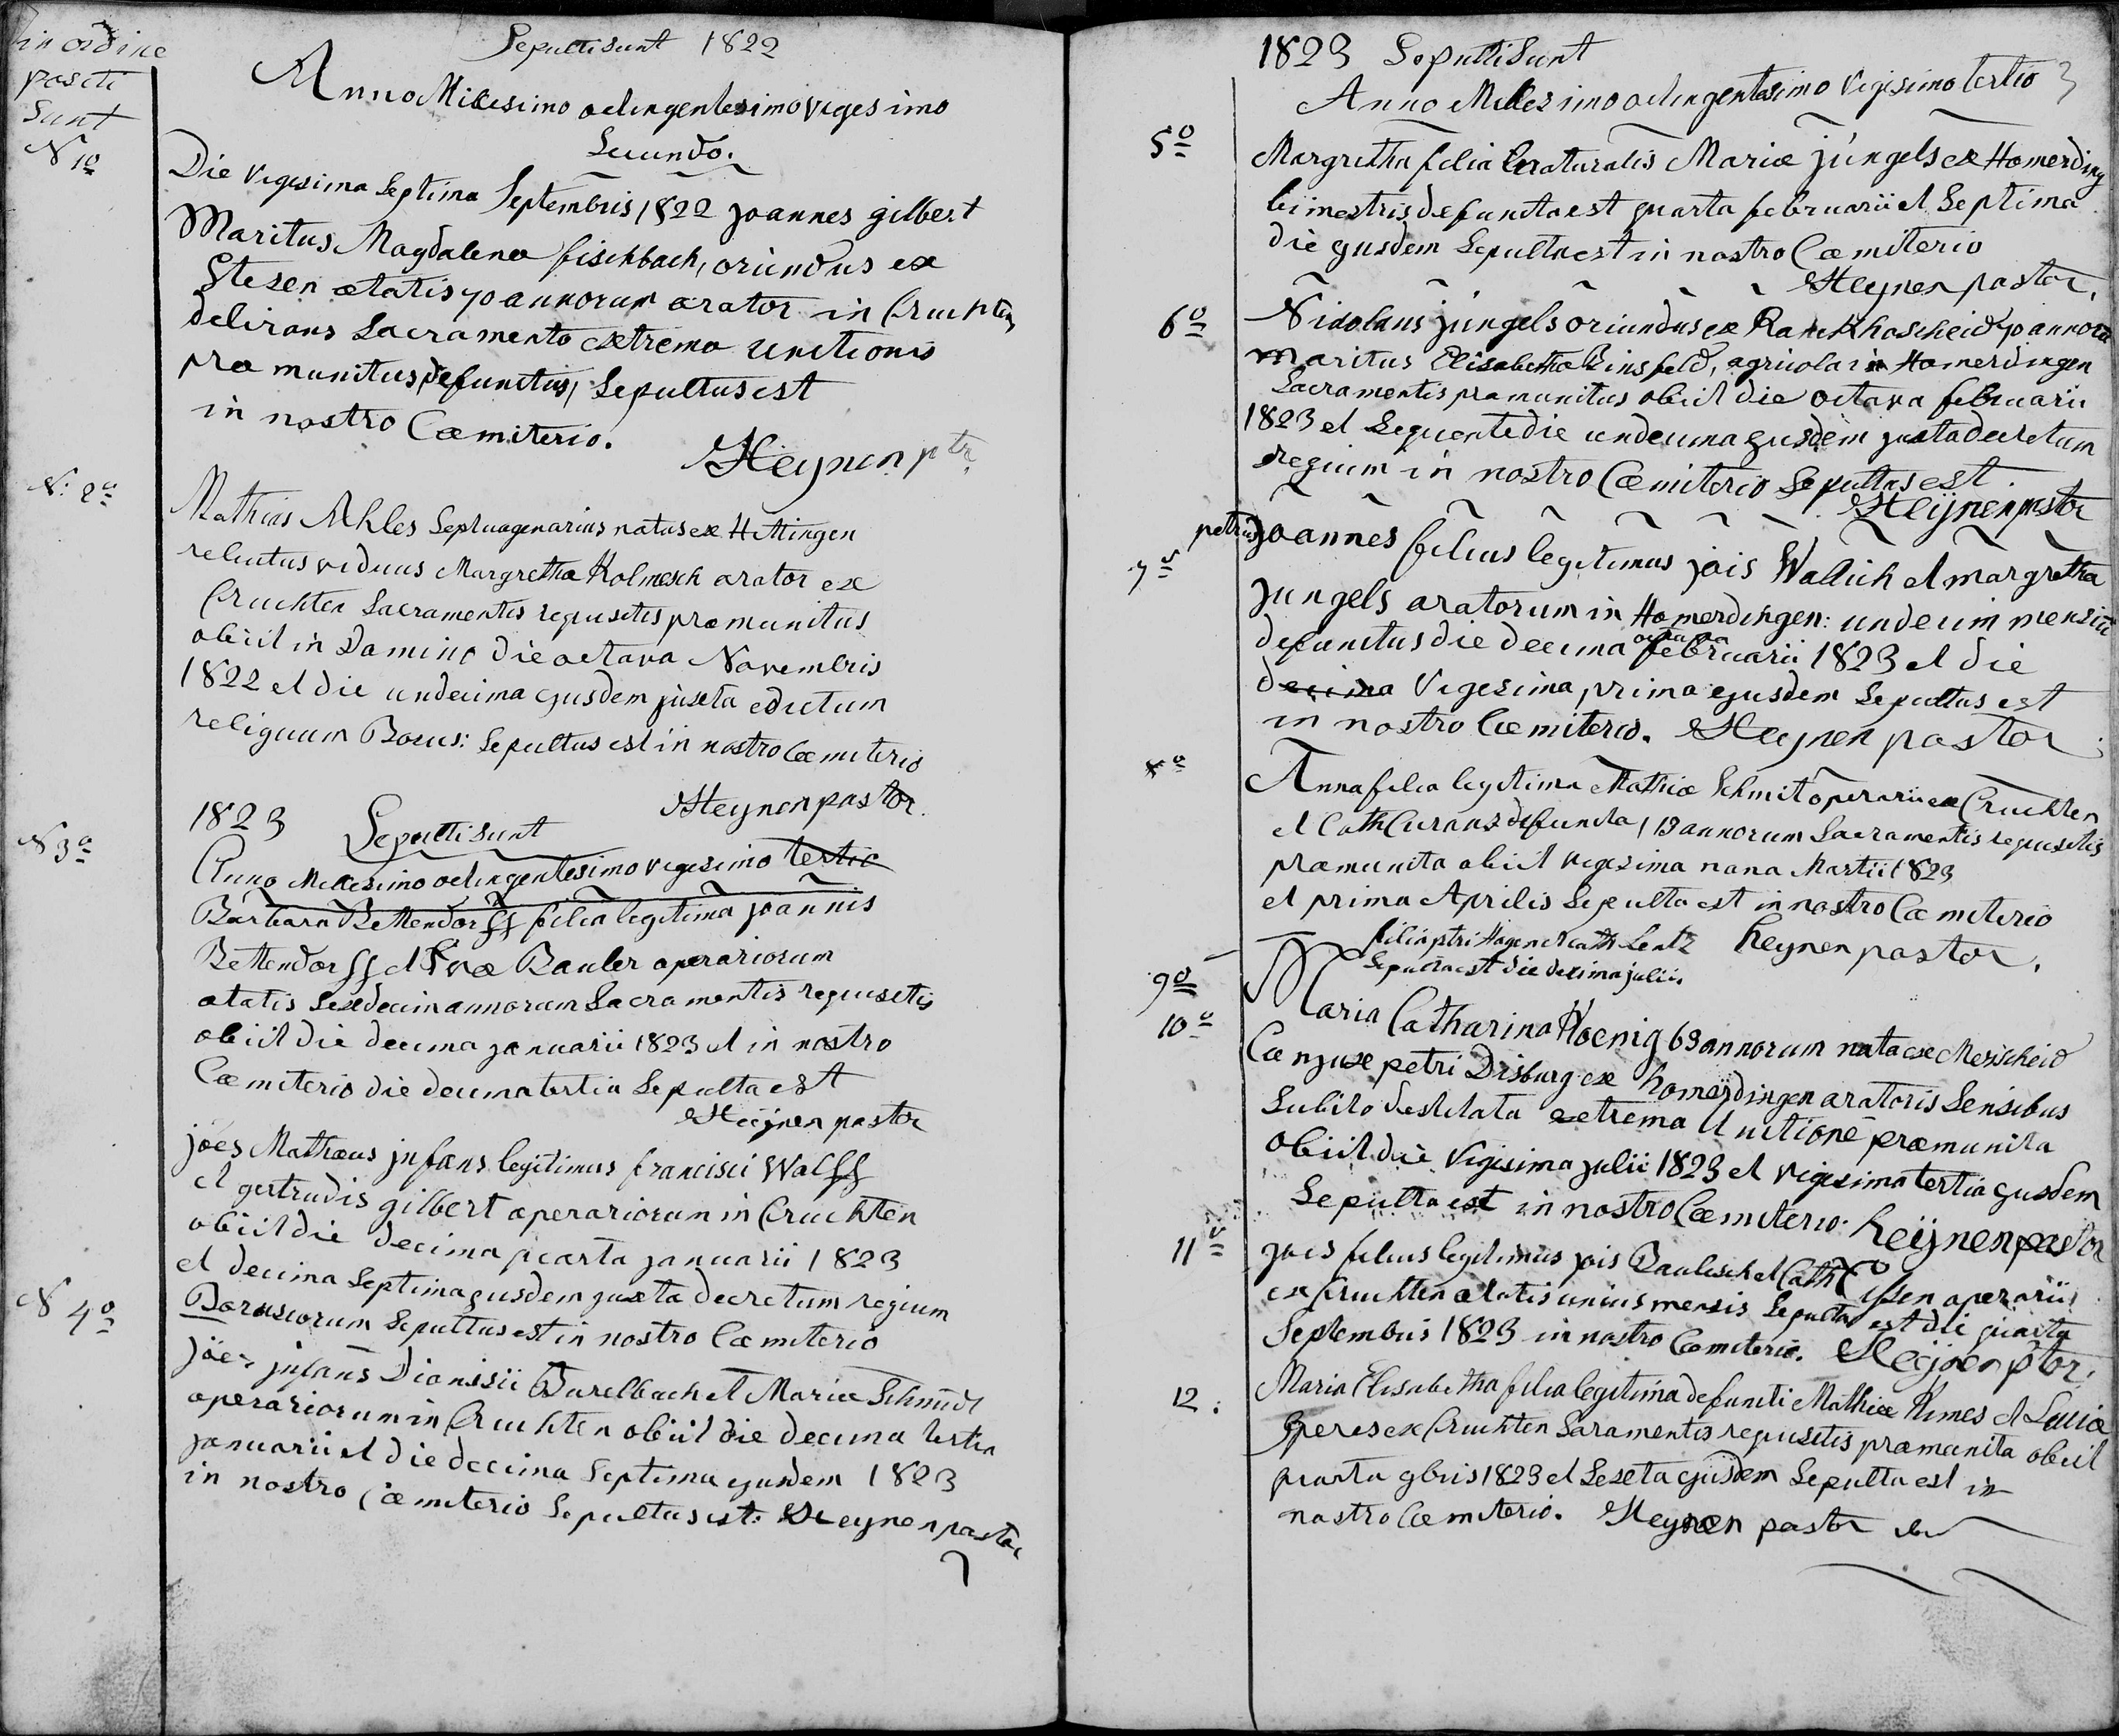 in ordine
positi
sunt
Sepulti Sunt 1822
Anno Millesimo octingentesimo vigesimo
Secundo.
N 1o
Die vigesima Septima Septembris 1822 joannes gilbert
Maritus Magdalenæ fischbach, oriundus ex
Stesen ætatis 70 annorum arator in Cruchten
delirans Sacramento extremæ unctionis
præmunitus, defunctus, Sepultus est
in nostro Cœmiterio.
Heynen ptr
N. 2o
Mathias Ahles Septuagenarius natus ex Httingen
relictus viduus Margrethæ Kolmesch arator ex
Cruchten Sacramentis requisitis præmunitus
obiit in Domino die octava Novembris
1822 et die undecima ejusdem juxta edictum
religuum Borus: Sepultus est in nostro Cœmiterio
Heynen pastor.
1823 Sepulti Sunt
N 3o
Anno Millesimo octingentesimo vigesimo tertio
Barbara Bettendorff filia legitima joannis
Bettendorff et Evæ Bauler operariorum
ætatis Sexdecim annorum Sacramentis requisitis
obiit die decima januarii 1823 et in nostro
Cœmiterio die decima tertia Sepulta est
Heijnen pastor
joës Mathæus jnfans legitimus francisci Walff
et gertrudis gilbert operariorum in Cruchten
obiit die decima quarta januarii 1823
et decima Septima ejusdem juxta decretum regium
N 4o
Borussorum Sepultus est in nostro Cœmiterio
jöes jnfans Dionisii Burelbach et Mariæ Schmidt
operariorum in Cruchten obiit die decima tertia
januarii et die decima Septima ejusdem 1823
in nostro Cœmiterio Sepultus est: Heynen pastor
1823 Sepulti Sunt
Anno Millesimo octingentesimo Vigesimo tertio
5o
Margretha filia naturalis Mariæ jüngels ex Homerding
bimestris defuncta est quarta februarii et Septima
die ejusdem Sepulta est in nostro Cœmiterio
Heynen pastor.
6o
Nicolaus jüngels oriundus ex 70 annorum
Maritus Elisabethæ Binsfeld, agricola in Homerdingen
Sacramentis præmunitus obiit die octava februarii
1823 et Sequente die undecima ejusdem juxta decretum
regium in nostro Cœmiterio Sepultus est
Heijnen pastor
7o
petrus joannes filius legitimus jöis Wallich et margretha
jungels aratorum in Homerdingen: undecim mensium
defunctus die decima octava februarii 1823 et die
decima Vigesima prima ejusdem Sepultus est
in nostro Cœmiterio. Heynen pastor
8o
Anna filia legitima Mathiæ Schmit operarii ex Cruchten
et Cath Curanz defuncta, 13 annorum Sacramentis requisitis
præmunita obiit vigesima nona Martii 1823
et prima Aprilis Sepulta est in nostro Cœmiterio
heynen pastor.
9o
filia ptri Hagen et cath Lentz
Sepulta est die decima julii.
10o
Maria Catharina Hoenig 63 annorum nata ex Merscheid
Conjux petri Disburg ex homerdingen aratoris Sensibus
Subito destituta extrema Unctione præmunita
obiit die Vigesima julii 1823 et vigesima tertia ejusdem
Sepulta est in nostro Cœmiterio. heijnen pastor
11o
joës filius legitimus jöis Baulisch et Cath operarii
ex Cruchten ætatis unius mensis Sepultus est die quarta
Septembris 1823 in nostro Cœmiterio. Heijnen ptor.
12.
Maria Elisabetha filia legitima defuncti Mathiæ Kimes et Luciæ
Speres ex Cruchten Saramentis requisitis præmunita obiit
quarta 9bris 1823 et Sexta ejusdem Sepulta est in
nostro Cœmiterio. Heynen pastor